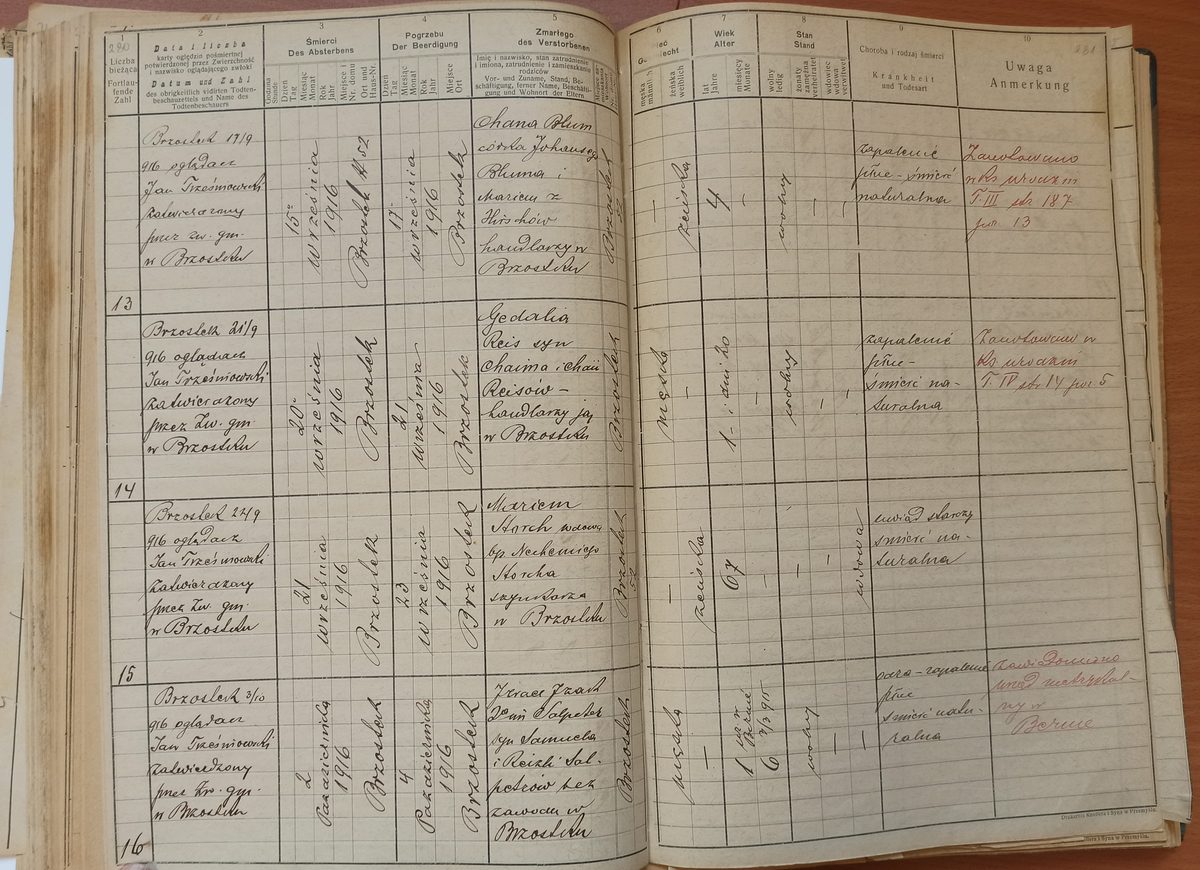 1
290
Liczba
bieżąca
Fortlau-
fende
Zahl
2
Data i liczba
karty oględzin pośmiertnej
potwierdzonej przez Zwierzchność
i nazwisko oglądającego zwłoki
Datum und Zahl
des obrigkeitlich vidirten Todten-
beschauzettels und Name des
Todtenbeschauers
3
Śmierci
Des Absterbens
Godzina
Stunde
Dzień
Tag
Miesiąc
Monat
Rok
Jahr
Miejsce i
Nr. domu
Ort und
Haus-Nr.
4
Pogrzebu
Der Beerdigung
Dzień
Tag
Miesiąc
Monat
Rok
Jahr
Miejsce
Ort
5
Zmarłego
des Verstorbenen
Imię i nazwisko, stan zatrudnienie
i imiona, zatrudnienie i zamieszkanie
rodziców
Vor- und Zuname, Stand, Be-
schäftigung, ferner Name, Beschäfti-
gung und Wohnort der Eltern
6
męska
männlich
żeńska
weiblich
7
Wiek
Alter
lat
Jahre
miesięcy
Monate
8
Stan
Stand
wolny
ledig
żonaty
zamężna
verheiratet
wdowiec
wdowa
verwitwet
9
Choroba i rodzaj śmierci
Krankheit
und Todesart
10
Uwaga
Anmerkung
13
Brzostek 17/9
916 oglądacz
Jan Trześniowski
zatwierdzony
przez zw. gm.
w Brzostku
15
września
1916
Brzostek N 52
17
września
1916
Brzostek
Chana Blum
córka
Bluma i
Mariem z
Hirschów
handlarzy w
Brzostku
Brzostek
52
—
żeńska
4
—
wolny
—
—
zapalenie
płuc - śmierć
naturalna
Zanotowano
w Ks urodzin
T. III str 187
poz. 13
14
Brzostek 21/9
916 oglądacz
Jan Trześniowski
zatwierdzony
przez Zw. gm
w Brzostku
20
września
1916
Brzostek
21
września
1916
Brzostek
Gedalia
Reis syn
Chaima i Chai
Reisów -
handlarzy jaj
w Brzostku
Brzostek
męska
—
1 - i dni 20
—
wolny
—
—
zapalenie
płuc -
śmierć na-
turalna
Zanotowano w
Ks urodzin
T. IV str 14 poz. 5
15
Brzostek 22/9
916 oglądacz
Jan Trześniowski
zatwierdzony
przez Zw. gm.
w Brzostku
21
września
1916
Brzostek
23
września
1916
Brzostek
Mariem
Storch wdowa
bp. Nechemiego
Storcha
szynkarza
w Brzostku
Brzostek
52
—
żeńska
67
—
—
—
wdowa
uwiąd starczy
śmierć na-
turalna
16
Brzostek 3/10
916 oglądacz
Jan Trześniowski
zatwierdzony
przez Zw. gm.
w Brzostku
2
Października
1916
Brzostek
4
Października
1916
Brzostek
Izrael Izaak
2ga im Salpeter
syn Samuela
i Reizli Sal-
petrów bez
zawodu w
Brzostku
Brzostek
męska
—
1
ur. w
Bernie
6
wolny
—
—
odra - zapalenie
płuc
śmierć natu-
ralna
Zawiadomiono
urząd metrykal-
ny w
Bernie
Drukarnia Knollera i Syna w Przemyślu.